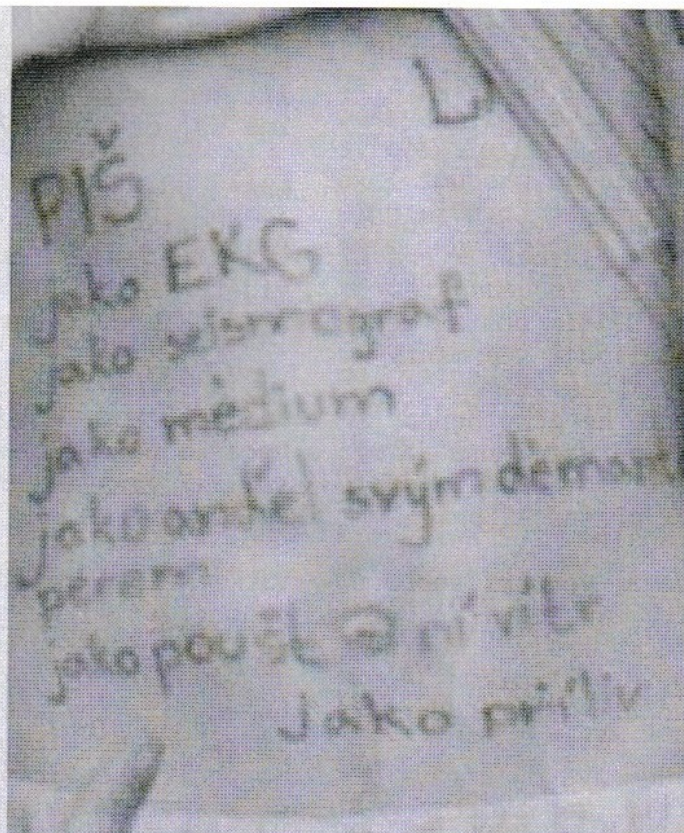 PIŠ
jako EKG
jako seismograf
jako médium
jako anděl svým
perem
jako poušt ní vítr
jako příliv